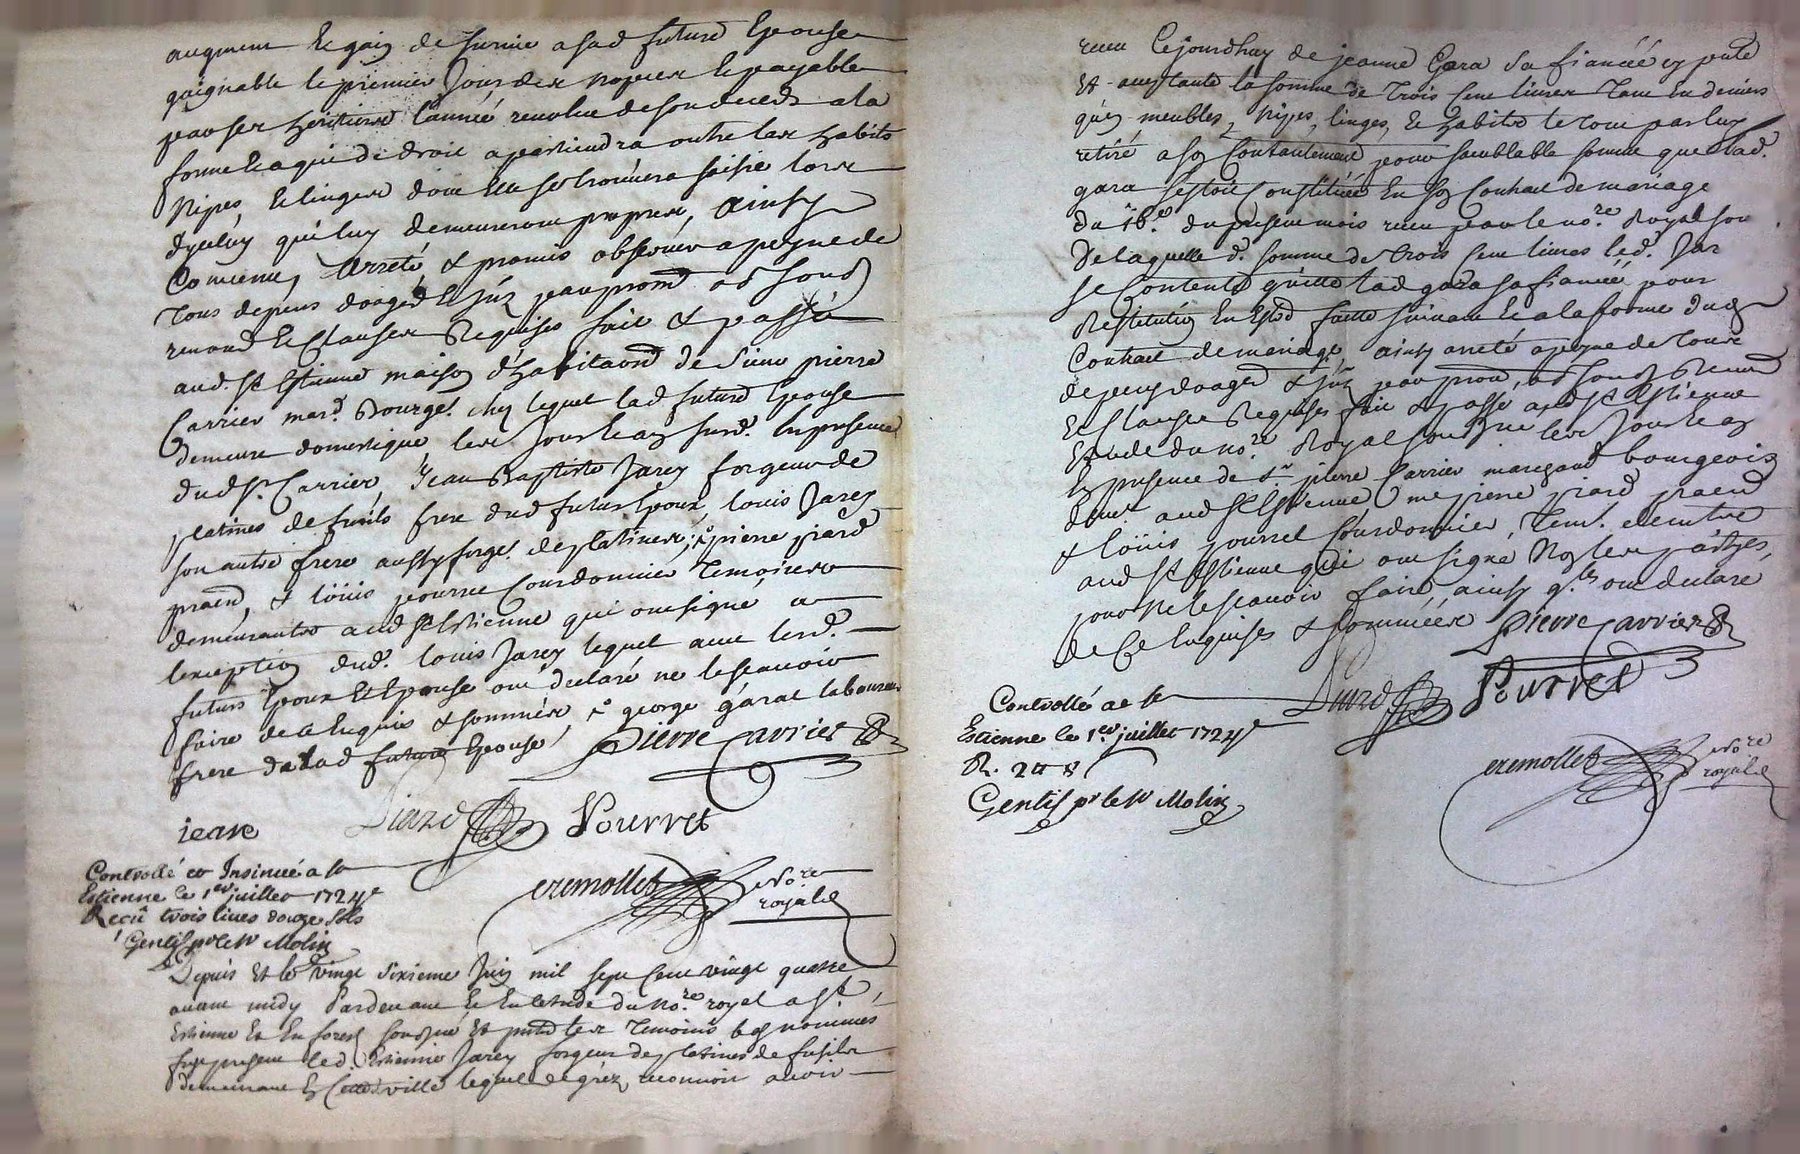 augment et gain de survie a lad future Epouse
gaignable le premier Jour des nopces et payable
par ses heritiers l'année revolue de son deceds a la
forme et a qui de droit apartiendra outre les habits
Nipes, et linges dont elle se trouvera saisie lors
d'yceluy qui luy demeureront propres, ainsy
Convenu, arreté, & promis observer a peyne de
tous depens domages & par prom
renond et Clauses Requises fait & passé
aud. St Estienne maison d'habitaon de Sieur pierre
Carrier mard. Bourgs. chez lequel lad future Epouse
demeure domestique les Jour et an susd. En presence
dud Sr. Carrier, Jean Baptiste Jarey forgeur de
platines de fusils frere dud futur Epoux, louis Jarey
son autre frere aussy forgr. de platines, pierre piard
pratn, & loüis pourret Courdonnier Temoins
demeurantes aud St Estienne qui ont signé a
lexception dud. louis Jarey lequel avec lesd.
futurs Epoux Et Epouse ont declaré ne le scavoir
faire de ce Enquis & sommés, george garat laboureur
frere de lad future Epouse
Pierre Carrier
jeare
Piard Pourret
Controllé et Insinué a St
Estienne le 1er juillet 1724
Reçû trois livres douze sols
Gentil pr le Sr Molin
eremollet Nore
royal
Depuis Et le vingt sixieme Juin mil sept Cent vingt quatre
avant midy Pardevant & En letude du Nore. royal a St.
Estienne En forest soussigné Et present les Temoins bas nommés
fut present led. Estienne Jarey forgeur de platines de fusils
demeurant En Cette ville lequel de gréz, reconnoit avoir
receu Cejourdhuy de jeanne Gara sa fiancée cy pnte
Et acceptante la somme de Trois Cent livres Tant En deniers
qu'en meubles, Nipes, linges, & habits le Tout par luy
retiré a son Contantement pour semblable somme que lad.
gara sestoit Constituée En son Contrat de mariage
du 16e. du present mois receu par le nore. Royal sou
De laquelle d. somme de Trois Cent livres led. Jar
se Contente quitte lad gara sa fiancée pour
Restitution En Estre faitte suivant & a la forme dud
Contrat de mariage, ainsy arreté a peyne de Tous
depens domages & par prom, Renond
Et Clauses Requises fait & passé aud St Estienne
Etude du nore. Royal soussigné les Jour et an
En presence de Sr. pierre Carrier marchand bourgeois
demt. aud St Estienne me pierre piard praticn
& loüis pourret Courdonnier, demt.
aud St Estienne qui ont signé Non les parties,
pour ne le scavoir faire, ainsy qls. ont declaré
de Ce Enquises & sommées
Pierre Carrier
Piard Pourret
Controllé a St
Estienne le 1er juillet 1724
R. 24 s
Gentil pr le Sr Molin
eremollet Nore
royal